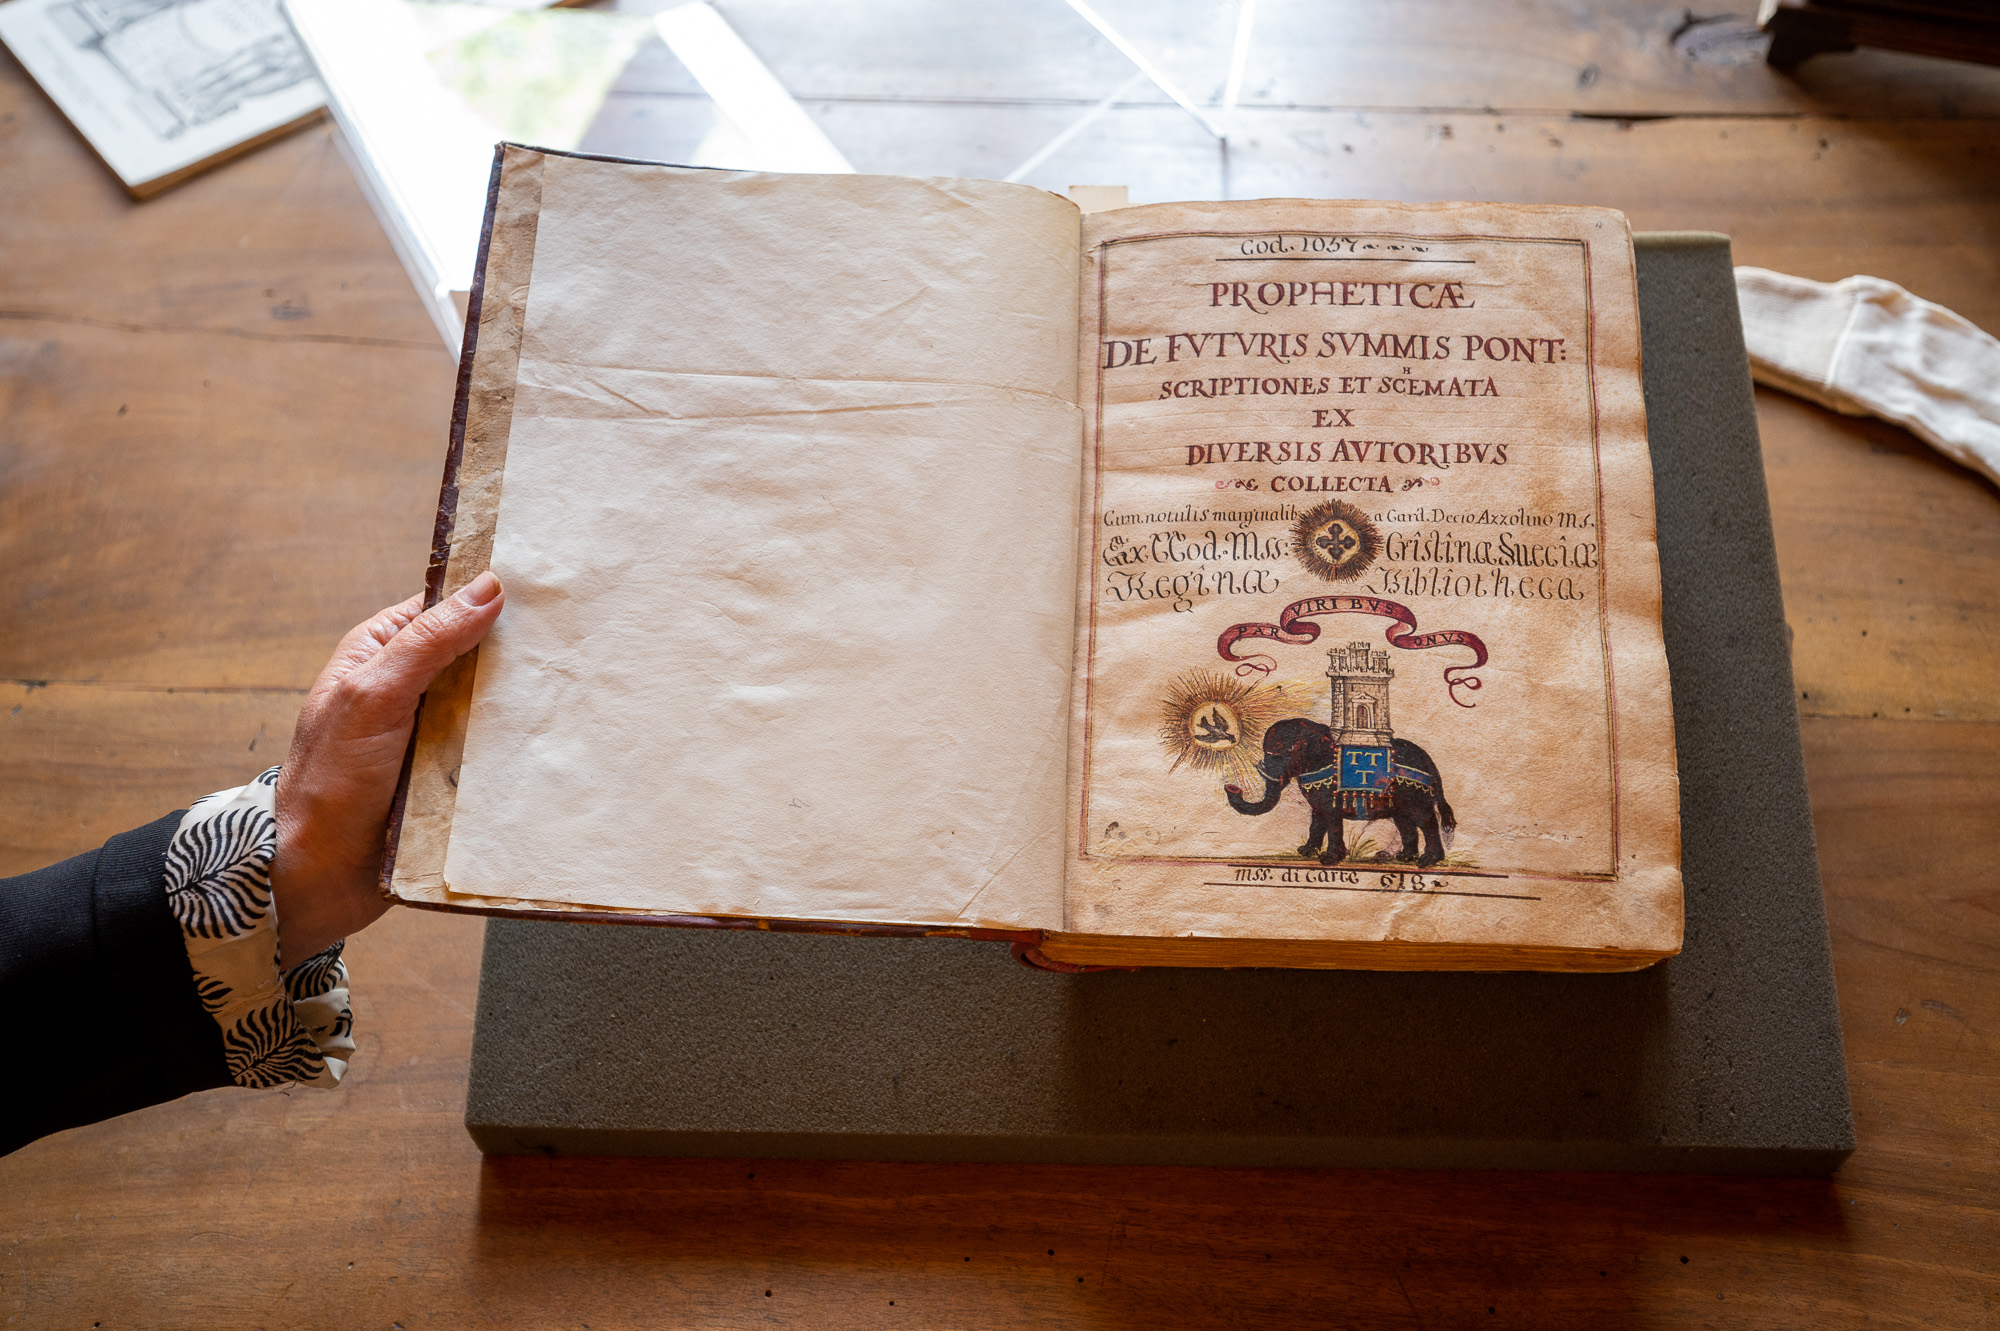 Cod. 1057
PROPHETICÆ
DE FVTVRIS SVMMIS PONT:
SCRIPTIONES ET SCEMATA
H
EX
DIVERSIS AVTORIBVS
COLLECTA
Cum notulis marginalib a Card. Decio Azzolino ms.
Et Ex CCod. Mss: Cristinæ Sueciæ
Reginæ Bibliotheca
PAR VIRIBVS ONVS
TT
T
mss. di Carte 618